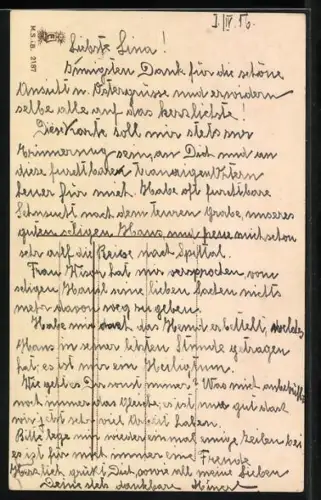 1. IV. 16.
M.S.i.B. 2187
Liebste Lina!
Innigsten Dank für die schöne
Ansicht u. Ostergrüsse und erwidern
selbe alle auf das herzlichste!
Diese Karte soll mir stets zur
Erinnerung sein, an Dich und an
diese furchtbaren traurigen Ostern
heuer für mich. Habe oft furchtbare
Sehnsucht nach dem teuren Grabe, unseres
guten seligen Hans, und freue mich schon
sehr auf die Reise nach Spittal.
Frau hat mir versprochen, vom
seligen Hansl seine lieben Sachen nichts
mehr davon weg zu geben.
Habe mir auch das Hemd erbettelt, welches
Hans in seiner letzten Stunde getragen
hat; es ist mir ein Heiligtum.
Wie geht es Dir sonst immer? Was mich anbetrifft
noch immer das Gleiche; es ist nur gut dass
wir jetzt sehr viel Arbeit haben.
Bitte lege mir wieder einmal einige Zeilen bei
es ist für mich immer eine Freude
Herzlich grüßt Dich, sowie all meine Lieben
Deine stets dankbare